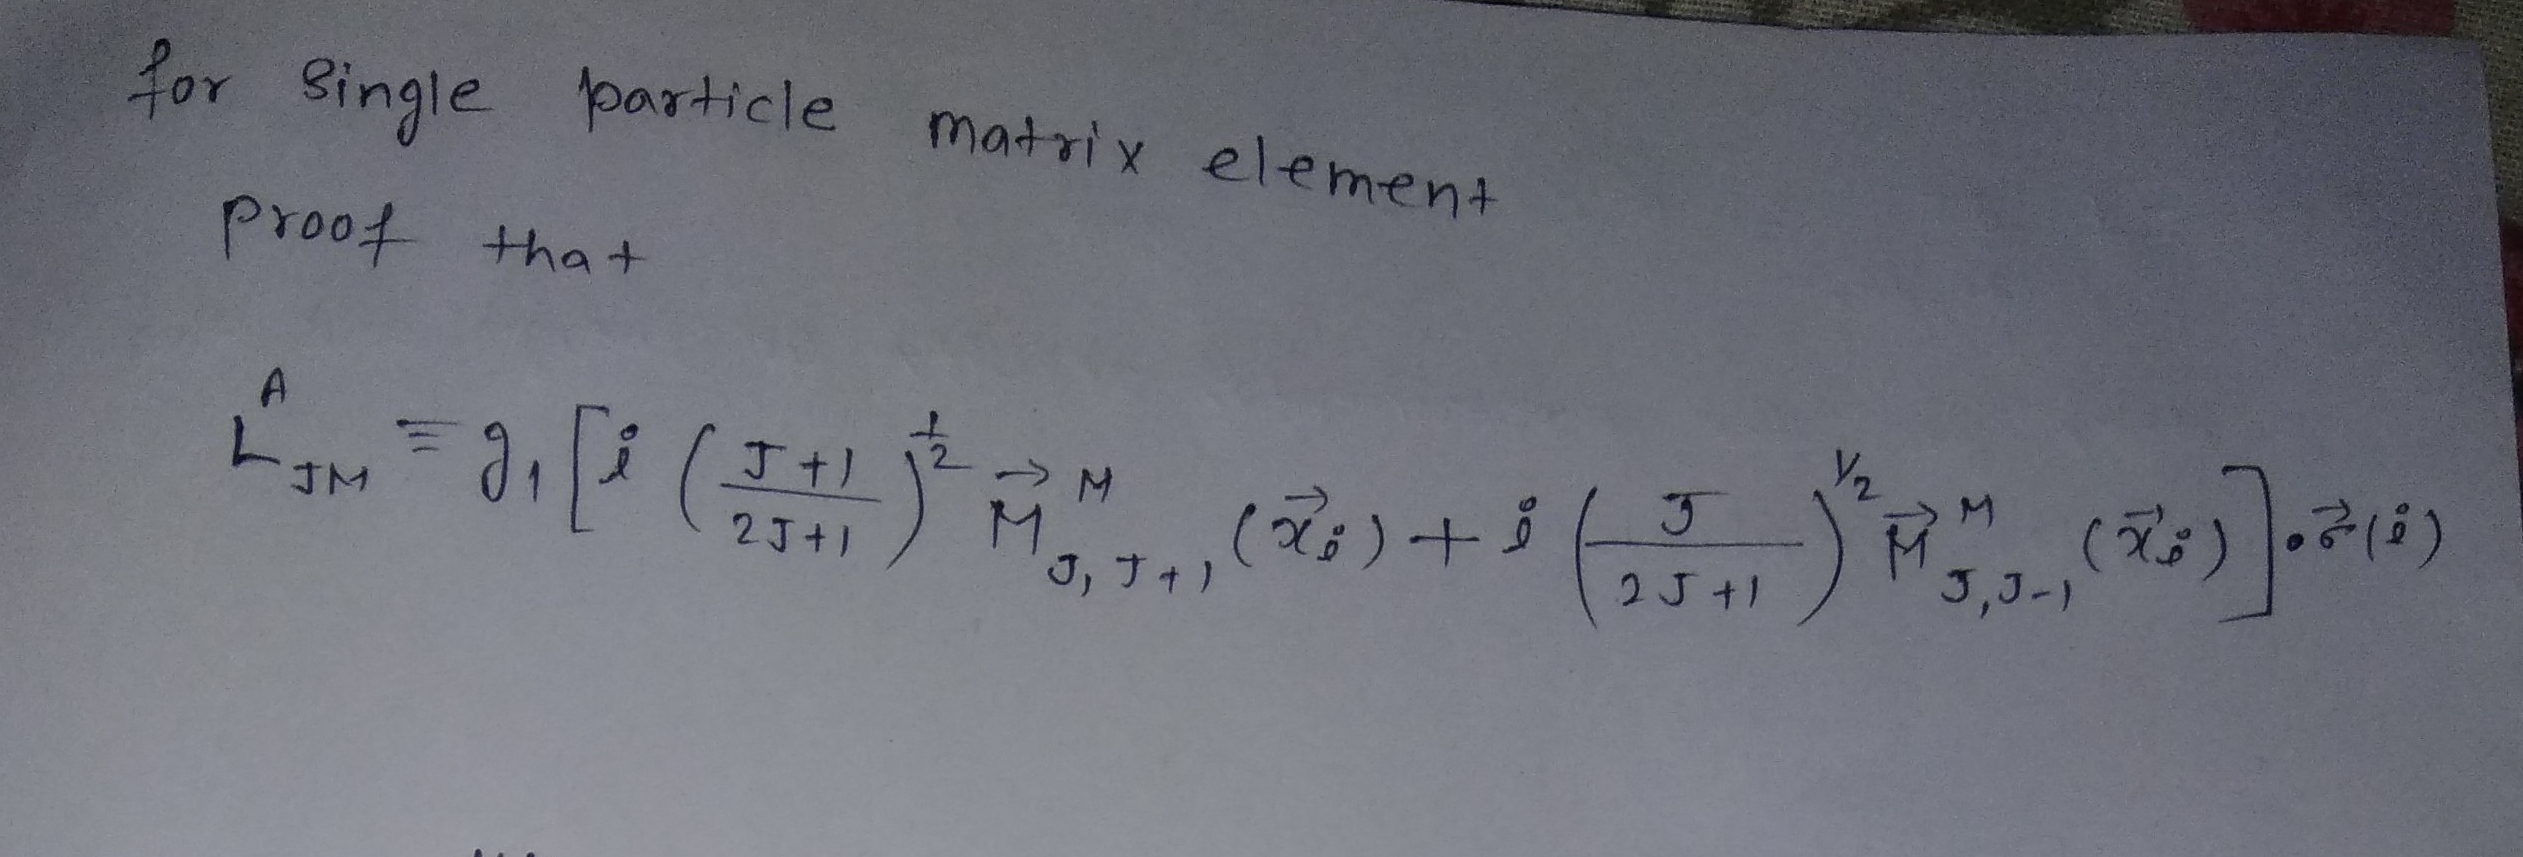 for single particle matrix element
proof that
L^A_{JM} ≡ g_1 [ i ( (J+1)/(2J+1) )^{1/2} \vec{M}^M_{J,J+1} (\vec{x}_i) + i ( J/(2J+1) )^{1/2} \vec{M}^M_{J,J-1} (\vec{x}_i) ] · \vec{σ}(i)